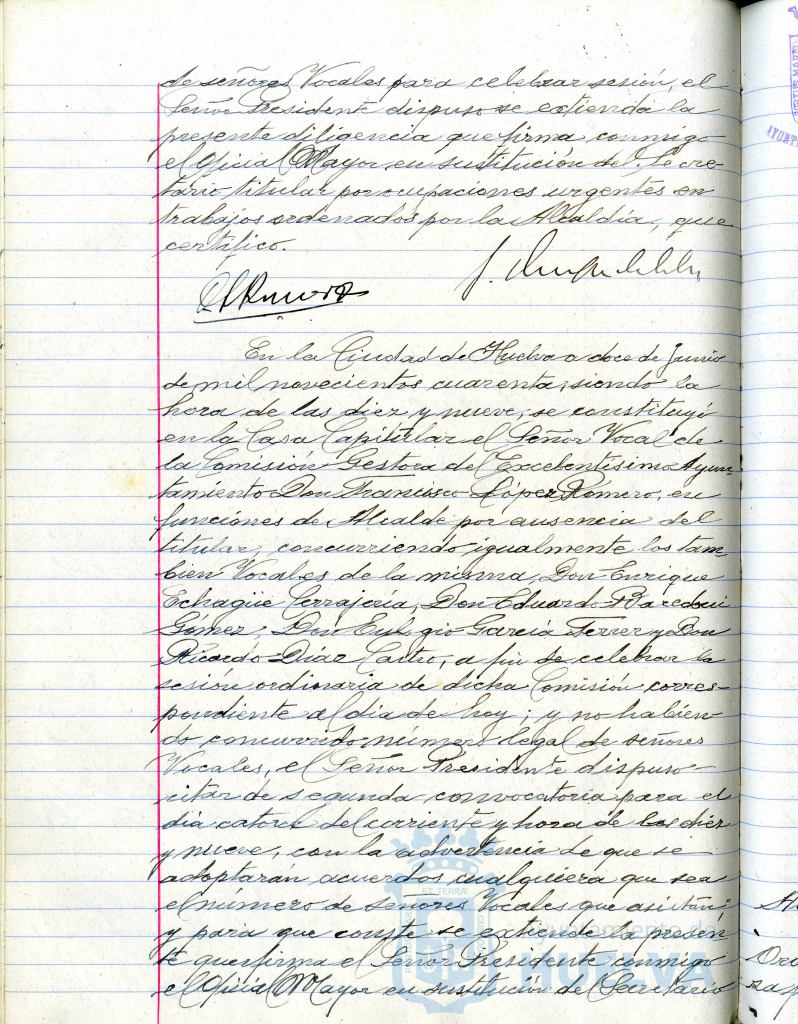 de señores Vocales para celebrar sesión, el
Señor Presidente dispuso se extienda la
presente diligencia que firma conmigo
el Oficial Mayor en sustitución del Secre-
tario titular por ocupaciones urgentes en
trabajos ordenados por la Alcaldía, que
certifico.
En la Ciudad de Huelva a doce de Junio
de mil novecientos cuarenta, siendo la
hora de las diez y nueve, se constituyó
en la Casa Capitular el Señor Vocal de
la Comisión Gestora del Excelentísimo Ayun-
tamiento Don Francisco López Romero, en
funciones de Alcalde por ausencia del
titular, concurriendo igualmente los tam-
bien Vocales de la misma, Don Enrique
Echagüe Cerrajería, Don Eduardo
Gómez, Don Eulogio García Ferrer y Don
Ricardo Díaz Castro, a fin de celebrar la
sesión ordinaria de dicha Comisión corres-
pondiente al día de hoy; y no habien-
do concurrido número legal de señores
Vocales, el Señor Presidente dispuso
citar de segunda convocatoria para el
día catorce del corriente y hora de las diez
y nueve, con la advertencia de que se
adoptaran acuerdos cualquiera que sea
el número de señores Vocales que asistan;
y para que conste se extiende la presen-
te que firma el Señor Presidente conmigo
el Oficial Mayor en sustitución del Secretario
HUELVA